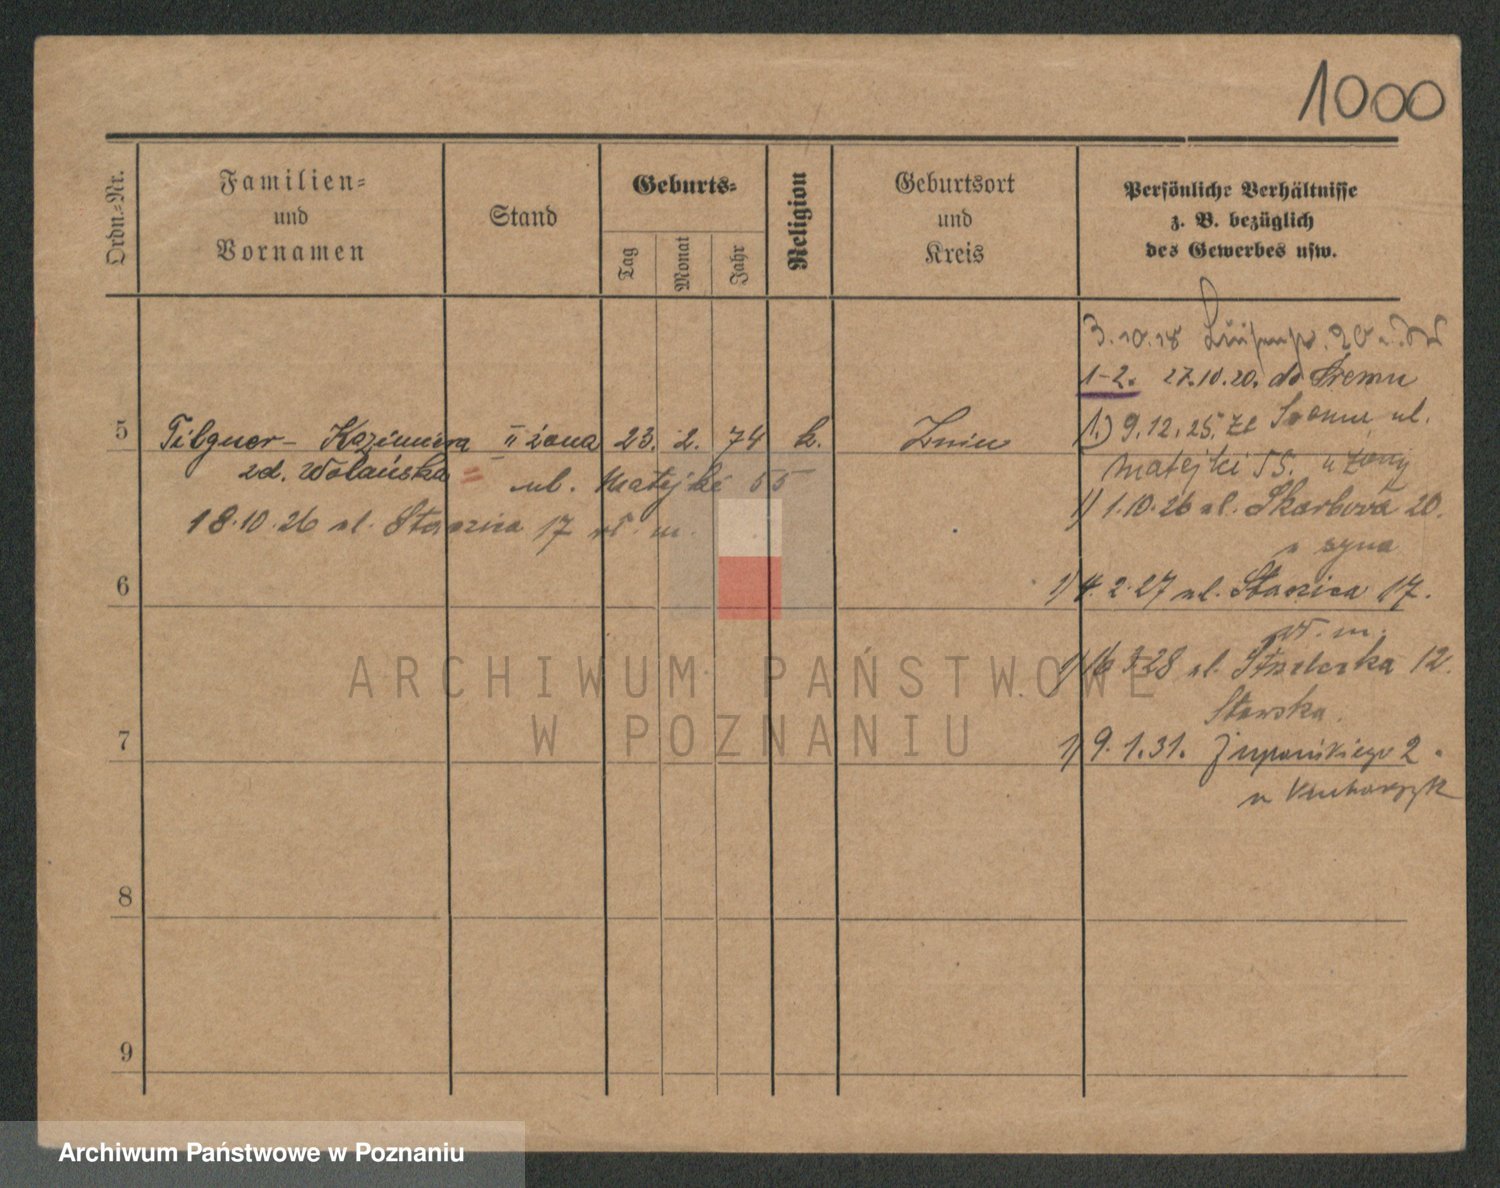 1000
Ordn.-Nr.
Familien-
und
Vornamen
Stand
Geburts-
Tag
Monat
Jahr
Religion
Geburtsort
und
Kreis
Persönliche Verhältnisse
z. B. bezüglich
des Gewerbes usw.
3.10.18 20
1-2. 27.10.20. do Śremu
5 Tilgner - Kazimiera II żona 23. 2. 74 k. Żnin
1.) 9.12.25. ze Śremu ul.
zd. Wolańska = ul. Matejki 55
Matejki 55. u żony
18.10.26 ul. Staszica 17 wł. m.
1) 1.10.26 ul. Skarbowa 20.
u syna
6
1) 4.2.27 ul. Staszica 17.
wł. m.
1) 16.3.28 ul. Strzelecka 12.
Stawska.
7
1) 9.1.31. Żupańskiego 2.
u Kucharzyk
8
9
ARCHIWUM PAŃSTWOWE
W POZNANIU
Archiwum Państwowe w Poznaniu